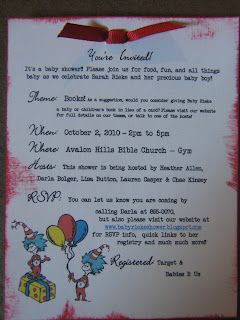 You're Invited!
It's a baby shower! Please join us for food, fun, and all things
baby as we celebrate Sarah Rieke and her precious baby boy!
Theme: Books! As a suggestion, would you consider giving Baby Rieke
a baby or children's book in lieu of a card? Please visit our website
for full details on our theme, or talk to one of the hosts!
When: October 2, 2010 - 2pm to 5pm
Where: Avalon Hills Bible Church - Gym
Hosts: This shower is being hosted by Heather Allen,
Darla Bolger, Lisa Hutton, Lauren Casper & Chae Kinsey
RSVP: You can let us know you are coming by
calling Darla at 855-0070,
but also please visit our website at
www.babyriekeshower.blogspot.com
for RSVP info, quick links to her
registry and much much more!
Registered: Target &
Babies R Us